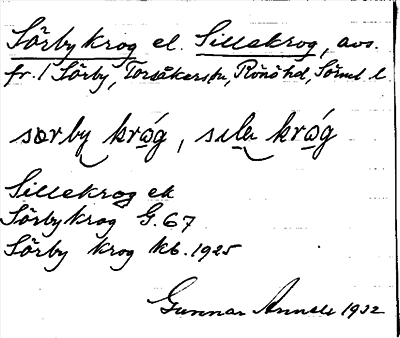 Sörby krog el. Sillekrog, avs.
fr. 1 Sörby, Torsåkers sn, Rönö hd, Söml. l.
særby krog, sılə krog
Sillekrog ek
Sörby krog G. 67
Sörby krog kb. 1925
Gunnar 1932